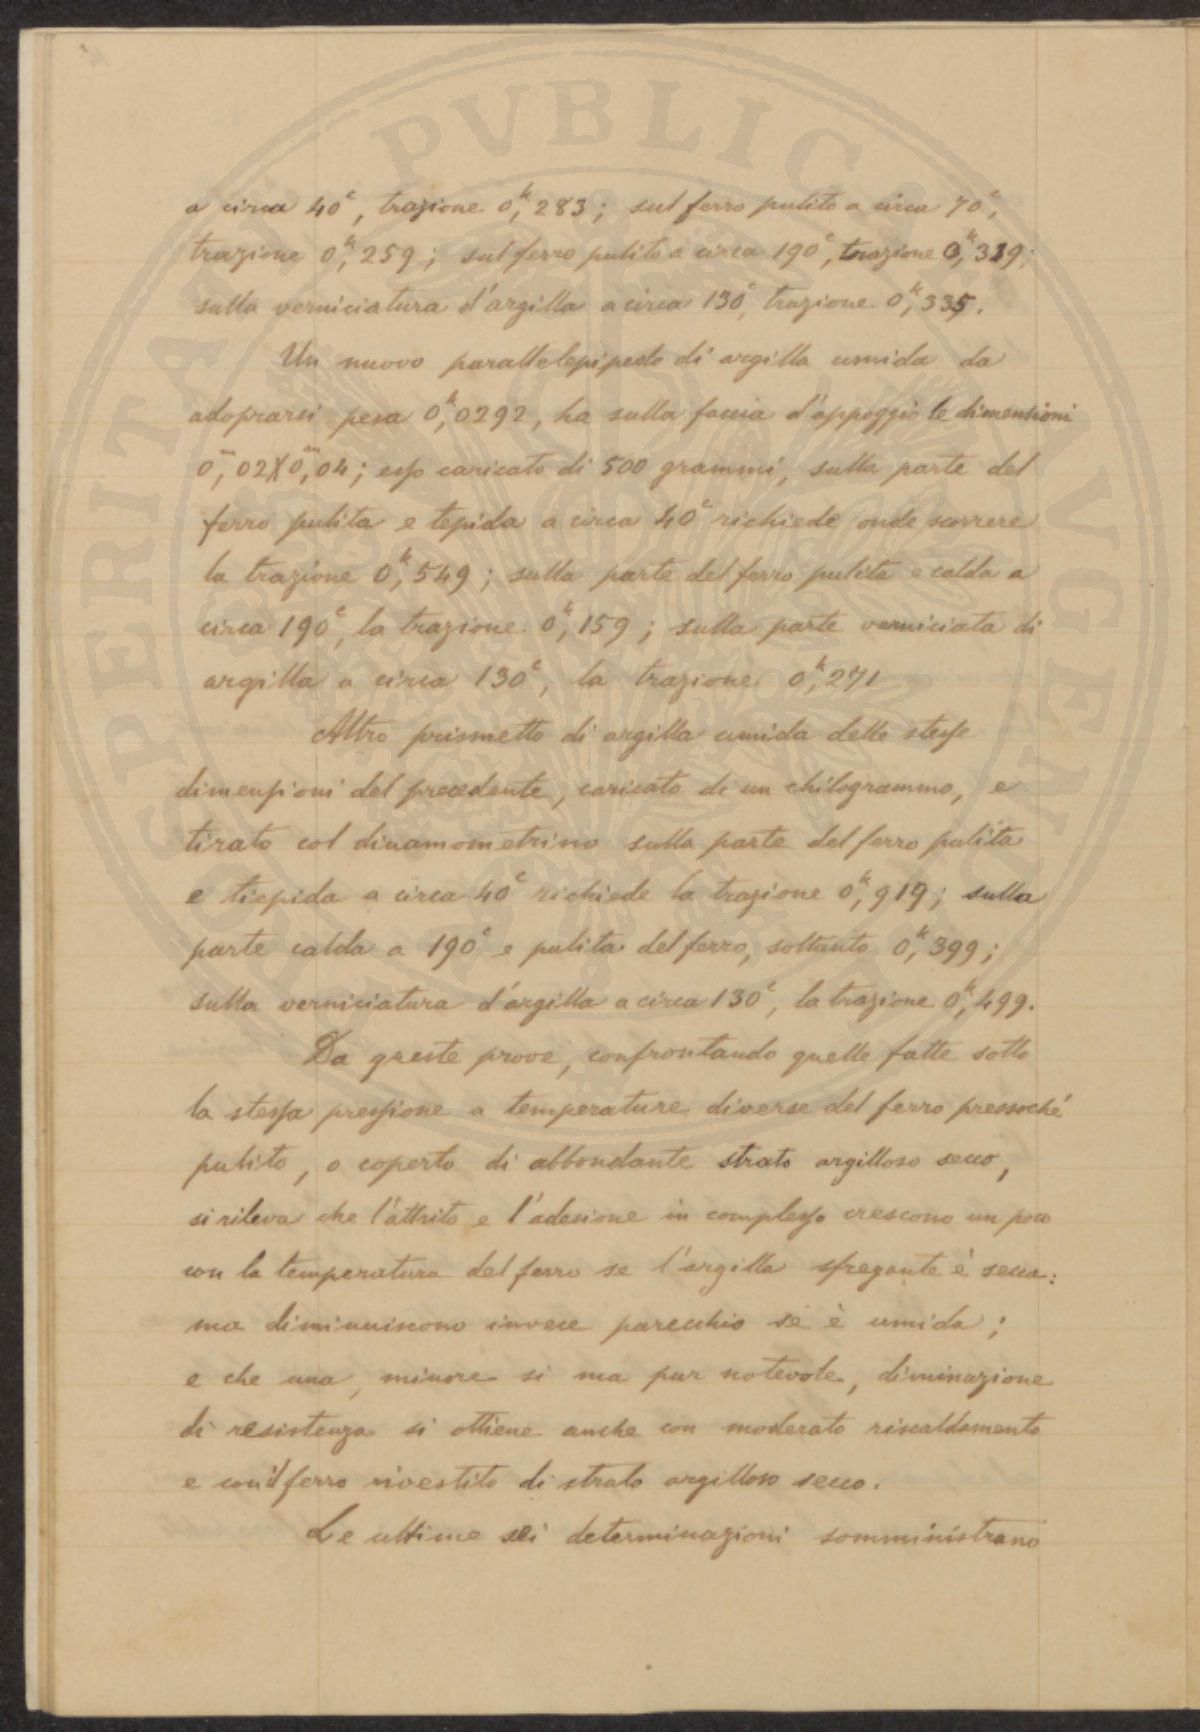 a circa 40°, trazione 0,ᵏ283; sul ferro pulito a circa 70°,
trazione 0,ᵏ259; sul ferro pulito a circa 190°, trazione 0,ᵏ319;
sulla verniciatura d'argilla a circa 130°, trazione 0,ᵏ335.
Un nuovo parallelepipedo di argilla umida da
adoprarsi pesa 0,ᵏ0292, ha sulla faccia d'appoggio le dimensioni
0,ᵐ02X0,ᵐ04; esso caricato di 500 grammi, sulla parte del
ferro pulita e tepida a circa 40° richiede onde scorrere
la trazione 0,ᵏ549; sulla parte del ferro pulita e calda a
circa 190°, la trazione 0,ᵏ159; sulla parte verniciata di
argilla a circa 130°, la trazione 0,ᵏ271
Altro prismetto di argilla umida delle stesse
dimensioni del precedente, caricato di un chilogrammo, e
tirato col dinamometrino sulla parte del ferro pulita
e tiepida a circa 40° richiede la trazione 0,ᵏ919; sulla
parte calda a 190° e pulita del ferro, soltanto 0,ᵏ399;
sulla verniciatura d'argilla a circa 130°, la trazione 0,ᵏ499.
Da queste prove, confrontando quelle fatte sotto
la stessa pressione a temperature diverse del ferro pressoché
pulito, o coperto di abbondante strato argilloso secco,
si rileva che l'attrito e l'adesione in complesso crescono un poco
con la temperatura del ferro se l'argilla sfregante è secca:
ma diminuiscono invece parecchio se è umida;
e che una, minore si ma pur notevole, diminuzione
di resistenza si ottiene anche con moderato riscaldamento
e con il ferro rivestito di strato argilloso secco.
Le ultime sei determinazioni somministrano
PROSPERITATI PVBLICAE AVGENDAE